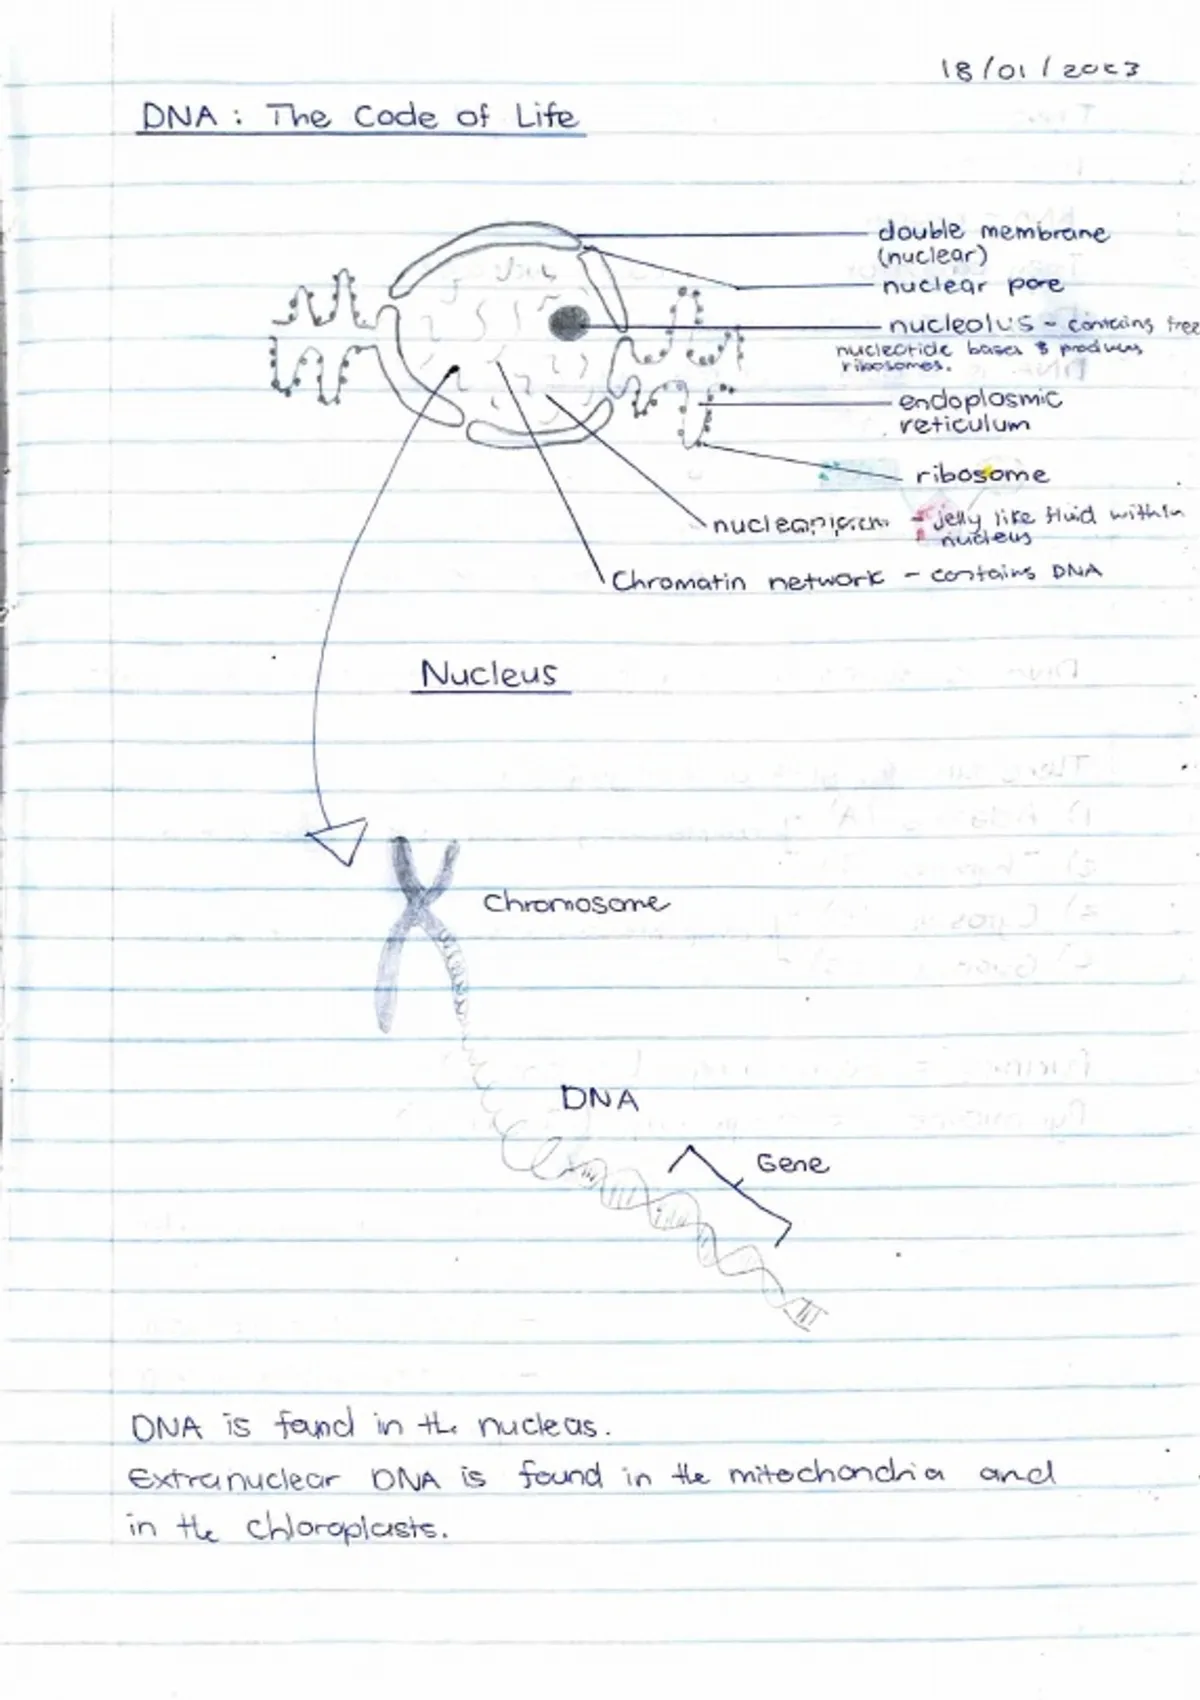 18/01/2023
DNA : The Code of Life
double membrane
(nuclear)
nuclear pore
nucleolus - contains free
nucleotide bases & produces
ribosomes.
endoplasmic
reticulum
ribosome
- jelly like fluid within
nucleus
Chromatin network - contains DNA
Nucleus
Chromosome
DNA
Gene
DNA is found in the nucleas.
Extranuclear DNA is found in the mitochondria and
in the chloroplasts.